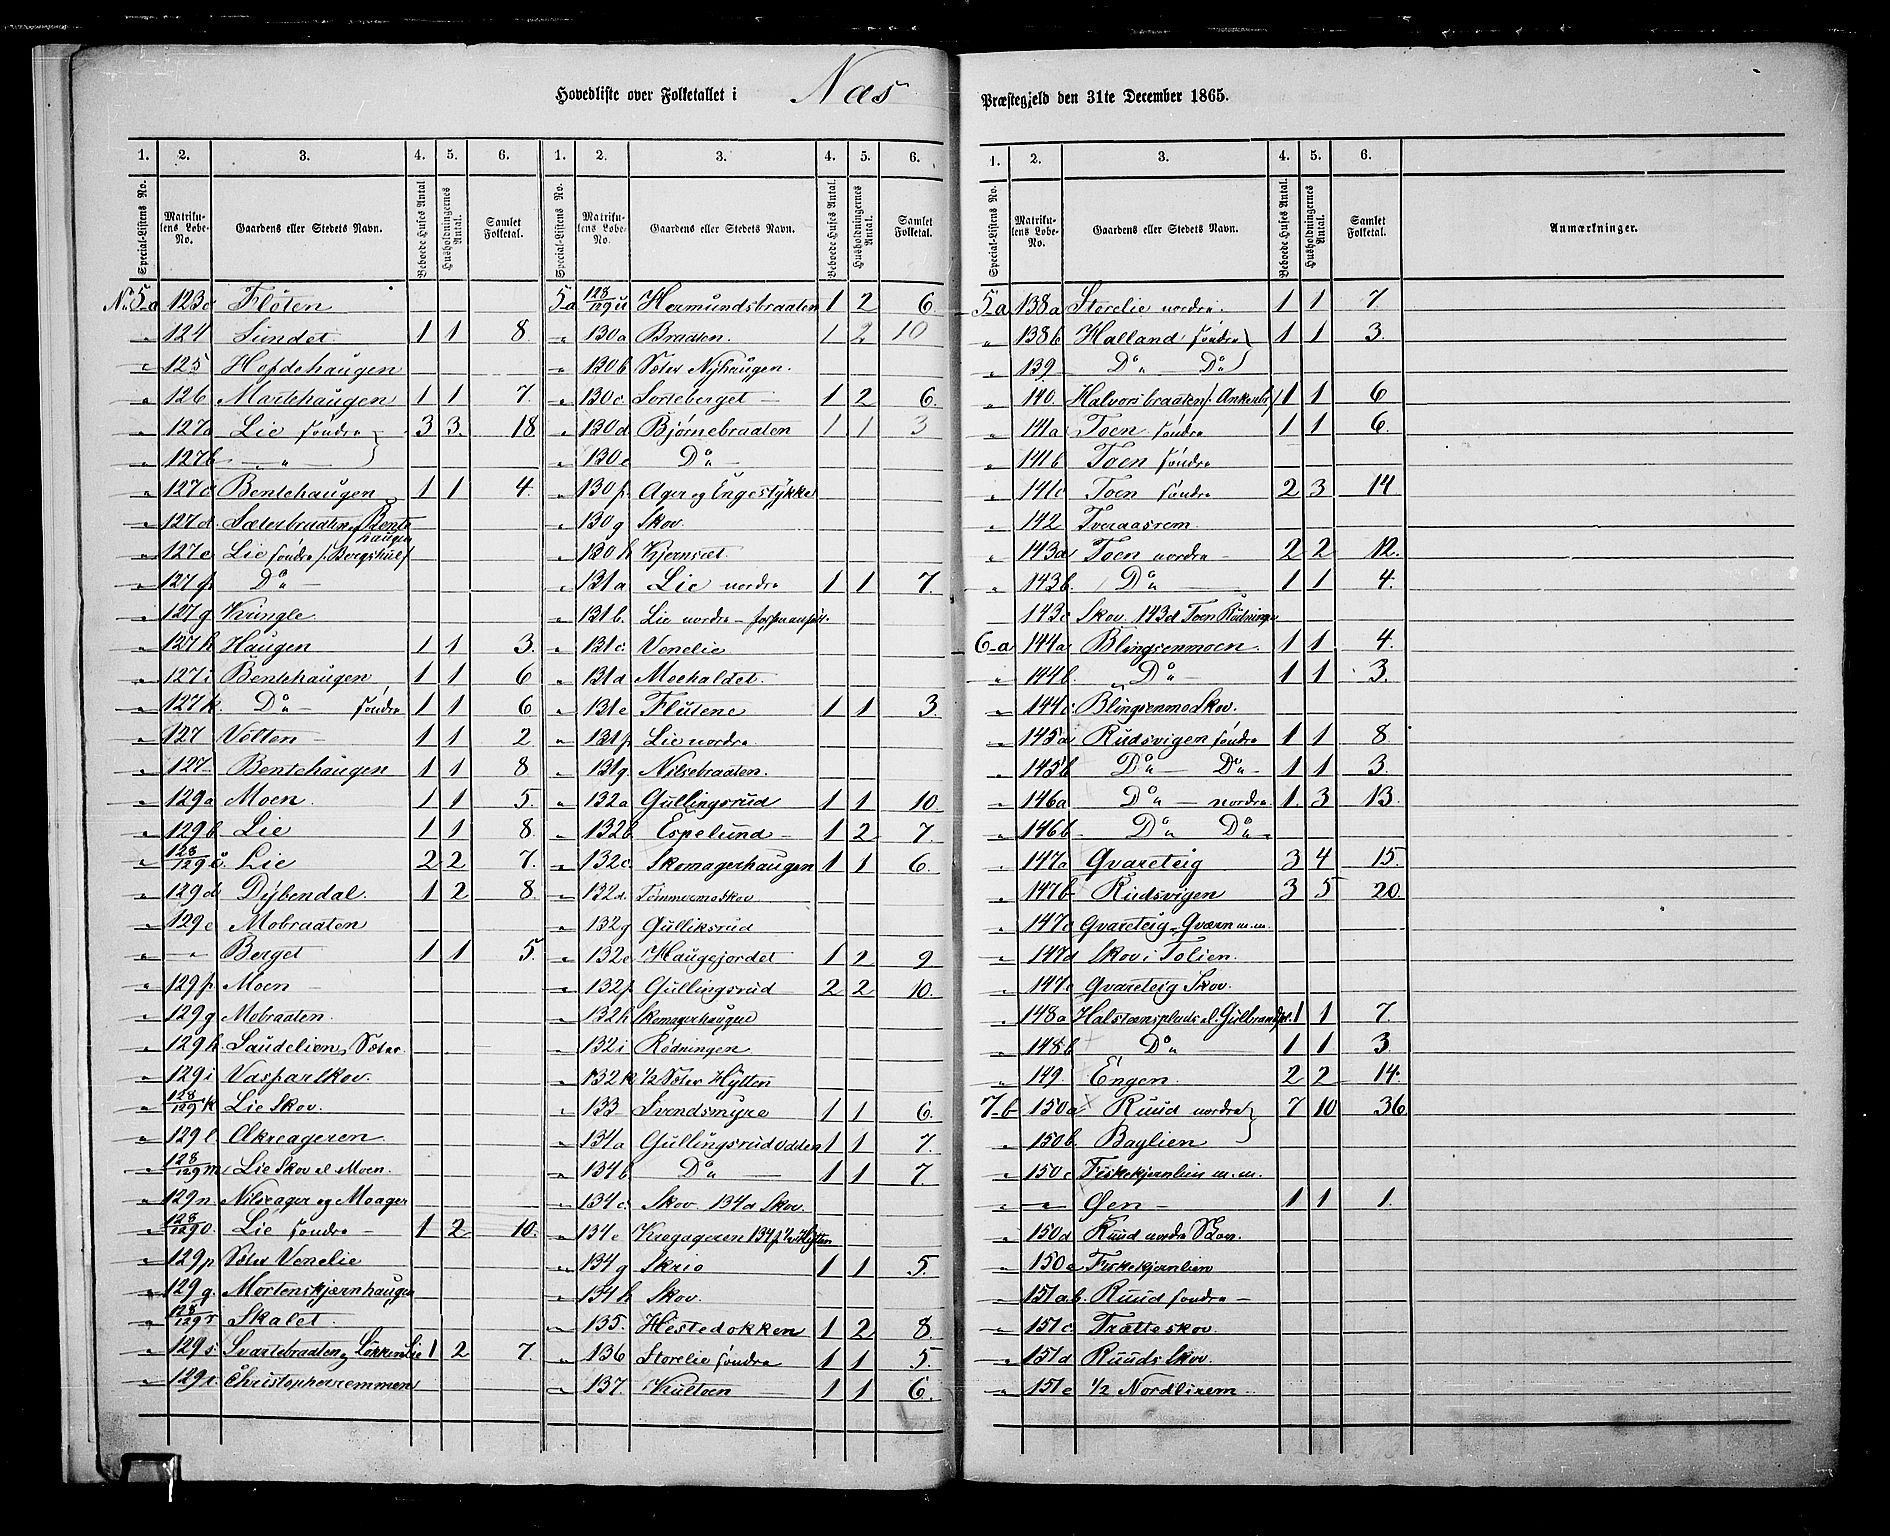 Hovedliste over Folketallet i Næs Præstegjeld den 31te December 1865.
1. 2. 3. 4. 5. 6. 1. 2. 3. 4. 5. 6. 1. 2. 3. 4. 5. 6.
Special-Listens No. Matrikulens Løbe-No. Gaardens eller Stedets Navn. Beboede Huses Antal Husholdningernes Antal. Samlet Folketal.
Special-Listens No. Matrikulens Løbe-No. Gaardens eller Stedets Navn. Beboede Huses Antal. Husholdningernes Antal. Samlet Folketal.
Special-Listens No. Matrikulens Løbe-No. Gaardens eller Stedets Navn. Beboede Huses Antal. Husholdningernes Antal. Samlet Folketal. Anmærkninger.
No. 5a 123c Flöten
" 124 Sundet 1 1 8
" 125 Hofdehaugen
" 126 Martehaugen 1 1 7.
" 127a Lie söndre 3 3. 18.
" 127b — " —
" 127c Bentehaugen 1 1 4.
" 127d. Sæterbraaten og Bentehaugen
" 127e Lie söndre /: Bergshul /
" 127f Do —
" 127g Kringle
" 127h Haugen 1 1 3.
" 127i Bentehaugen 1 1 6
" 127k. Do — söndre 1 1 6
" 127 Votten — 1 1 2.
" 127 Bentehaugen 1 1 8
" 129a Moen. 1 1 5.
" 129b Lie 1 1 8.
" 128/129c. Lie 2 2 7.
" 129d Dybendal. 1 2 8.
" 129e Mobraaten
" — " — Berget 1 1 5.
" 129f Moen —
" 129g Mobraaten.
" 129h Saudelien, Sæter.
" 129i Vasfarskov.
" 128/129k Lie Skov.
" 129l Ækreageren
" 128/129m Lie Skov el Moen.
" 129n Nilseager og Moager
" 128/129o. Lie söndre — 1 2 10.
" 129p Sæter Venelie
" 129q. Mortenskjærnhaugen
" 128/129r Skalet.
" 129s Svartebraaten og Lökken Lie 1 2 7.
" 129t Christopherremmen
5a 128/129u Hermundsbraaten 1 2 6
" 130a Braaten. 1 2 10
" 130b Sæter Nyhaugen.
" 130c. Sorteberget — 1 2 6.
" 130d Bjørnebraaten 1 1 3
" 130e Do —
" 130f Ager og Engestykke
" 130g Skov.
" 130h Kjernsæt.
" 131a Lie nordre 1 1 7.
" 131b. Lie nordre —
" 131c. Venelie
" 131d Moehaldet.
" 131e Flutene 1 1 3.
" 131f Lie nordre.
" 131g. Nilsebraaten.
" 132a Gullingsrud 1 1 10.
" 132b Espelund — 1 2 7.
" 132c. Skomagerhaugen 1 1 6.
" 132d. Tömmermoskov
" 132g Gulliksrud
" 132e Haugejordet 1 2 9
" 132f Gullingsrud 2 2 10.
" 132h Skomagerhaugen
" 132i Rødningen
" 132k ½ Sæter Hytten
" 133 Svendsmyre 1 1 6.
" 134a Gullingsrudodden 1 1 7.
" 134b Do — 1 1 7
" 134c. Skov 134d Skov.
" 134e Krogageren 134f ½ Hytten
" 134g Skrio 1 1 5.
" 134h Skov.
" 135. Hestedokken 1 2 8.
" 136 Storelie söndre 1 1 5.
" 137. Kultoen 1 1 6.
5a 138a Storelie nordre. 1 1 7.
" 138b Halland söndre 1 1 3.
" 139 Do — Do
" 140. Halvorsbraaten /: Ankerbr / 1 1 6
" 141a Toen söndre 1 1 6.
" 141b Toen söndre
" 141c Toen söndre 2 3 14
" 142 Tveraasrem
" 143a Toen nordre — 2 2 12.
" 143b. Do — 1 1 4.
143c Skov 143d Toen Rudninger
6-a 144a Blingsenmoen. 1 1 4.
" 144b. Do — 1 1 3.
" 144c. BlingsenmoSkov.
" 145a Rudsvigen söndre 1 1 8
" 145b Do — Do — 1 1 3.
" 146a Do — nordre. 1. 3 13.
" 146b Do Do —
" 147a Qvareteig 3 4 15.
" 147b Rudsvigen 3 5 20.
" 147c Qvareteig Qværn m.m.
" 147d Skov i Tolien.
" 147e Qvareteig Skov.
" 148a Halsteensplads el. Gulbrandspl. 1 1 7.
" 148b Do — 1 1 3.
" 149. Engen. 2 2 14.
7-b 150a Ruud nordre 7 10 36
" 150b. Baglien
" 150c Fiskekjernlien m.m.
" — " — Øen — 1 1 1.
" 150d Ruud nordre Skov.
" 150e Fiskekjernlien
" 151ab. Ruud söndre —
" 151c. Tratteskov.
" 151d Ruuds Skov.
" 151e ½ Nordlirem